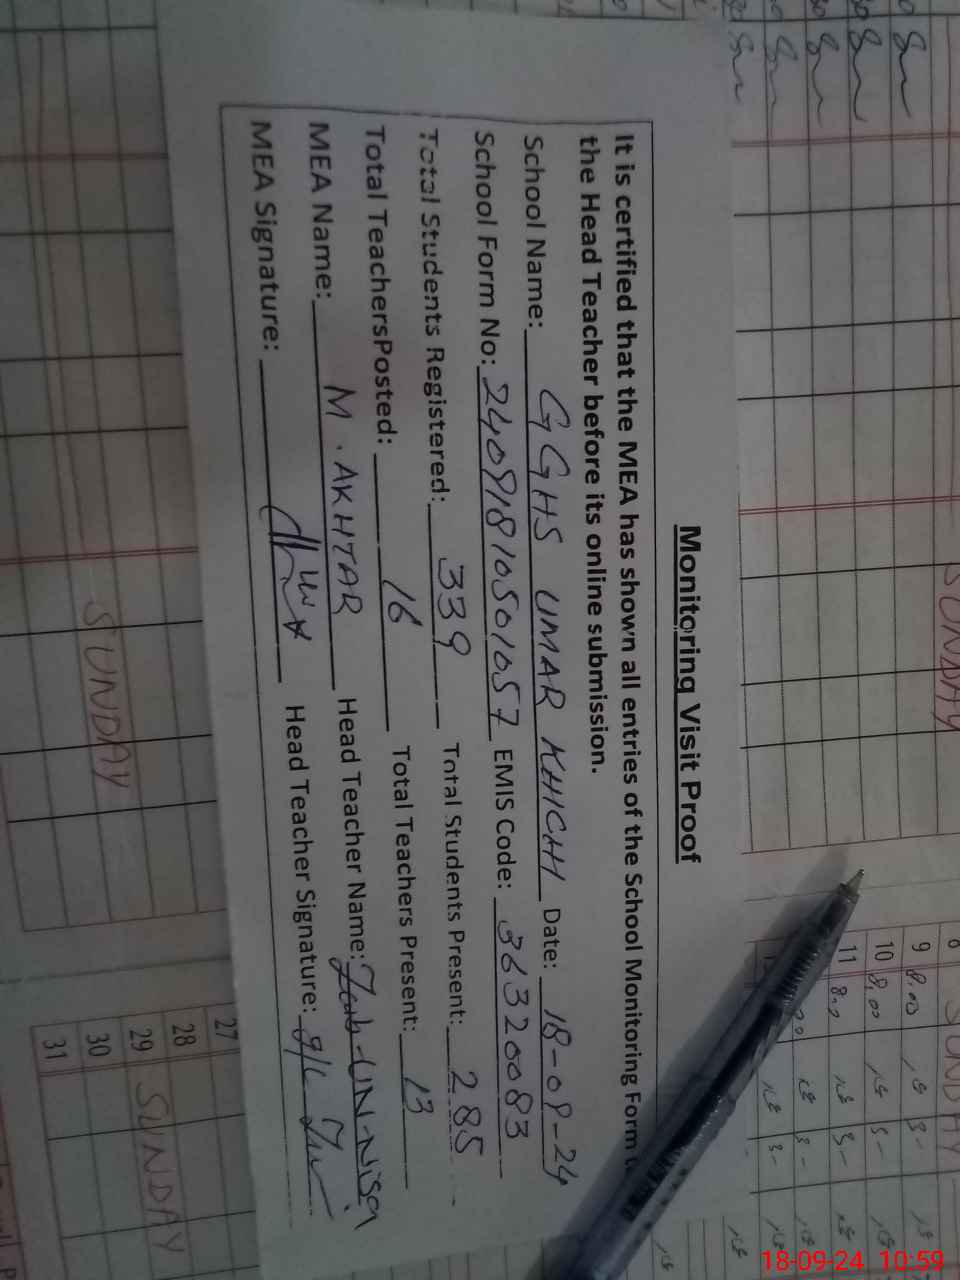 Monitoring Visit Proof
It is certified that the MEA has shown all entries of the School Monitoring Form
the Head Teacher before its online submission.
School Name: GGHS UMAR KHICHI Date: 18-09-24
School Form No: 24091810501057 EMIS Code: 36320083
Total Students Registered: 339 Total Students Present: 285
Total TeachersPosted: 16 Total Teachers Present: 13
MEA Name: M. AKHTAR Head Teacher Name: Zaib-UN-Nisa
MEA Signature: Head Teacher Signature:
SUNDAY
SUNDAY
SUNDAY
SUNDAY
9 8.00
10 8.00
11
27
28
29
30
31
18-09-24 10:59